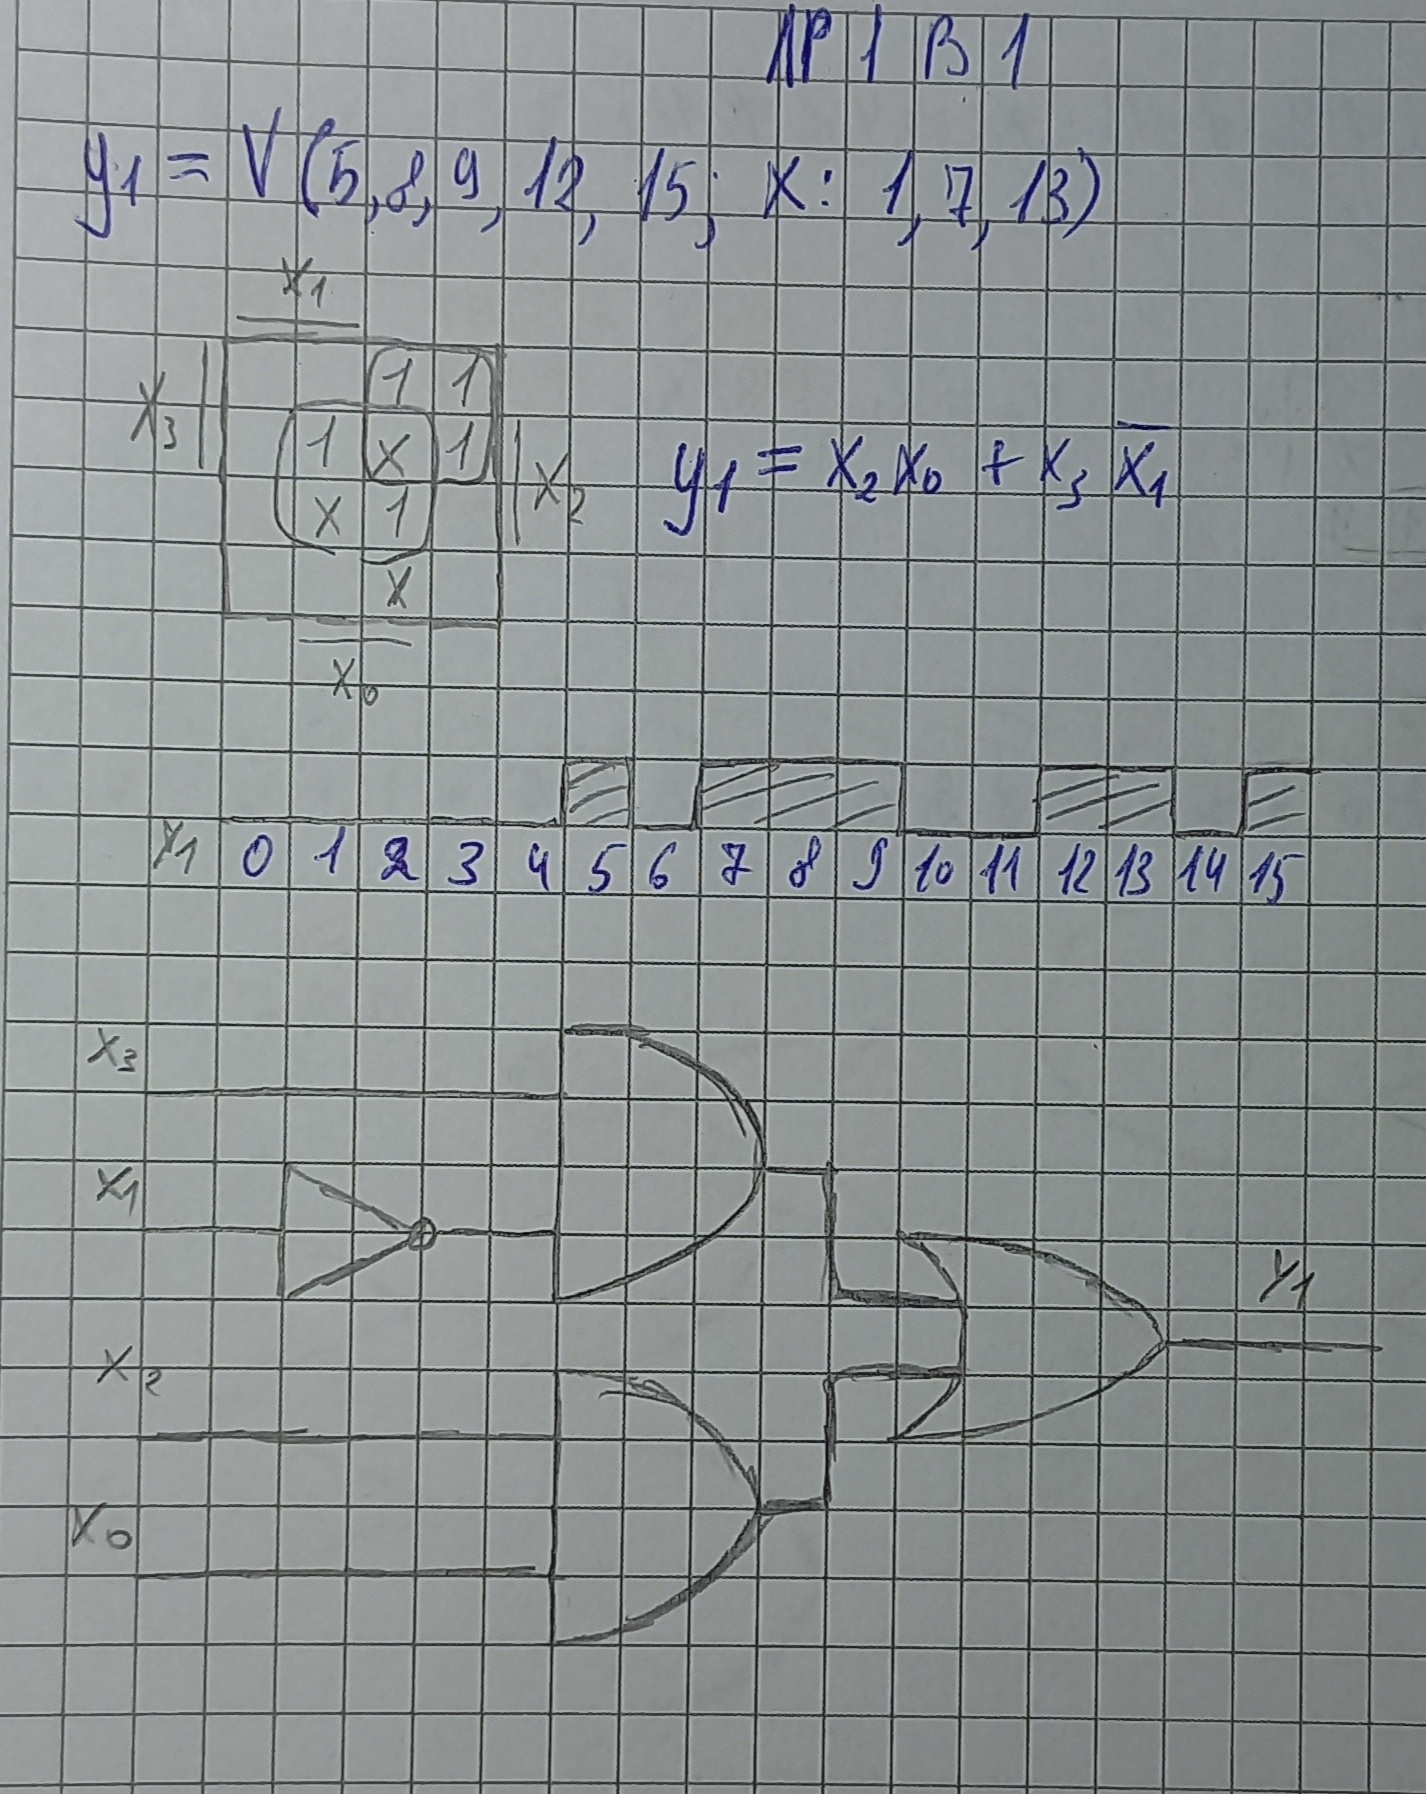 ЛР 1 В 1
y₁ = V (5, 8, 9, 12, 15; X: 1, 7, 13)
X₁
1 1
X₃ 1 X 1 X₂
X 1
X
X₀
y₁ = X₂ X₀ + X₃ X̅₁
Y₁ 0 1 2 3 4 5 6 7 8 9 10 11 12 13 14 15
X₃
X₁
Y₁
X₂
X₀